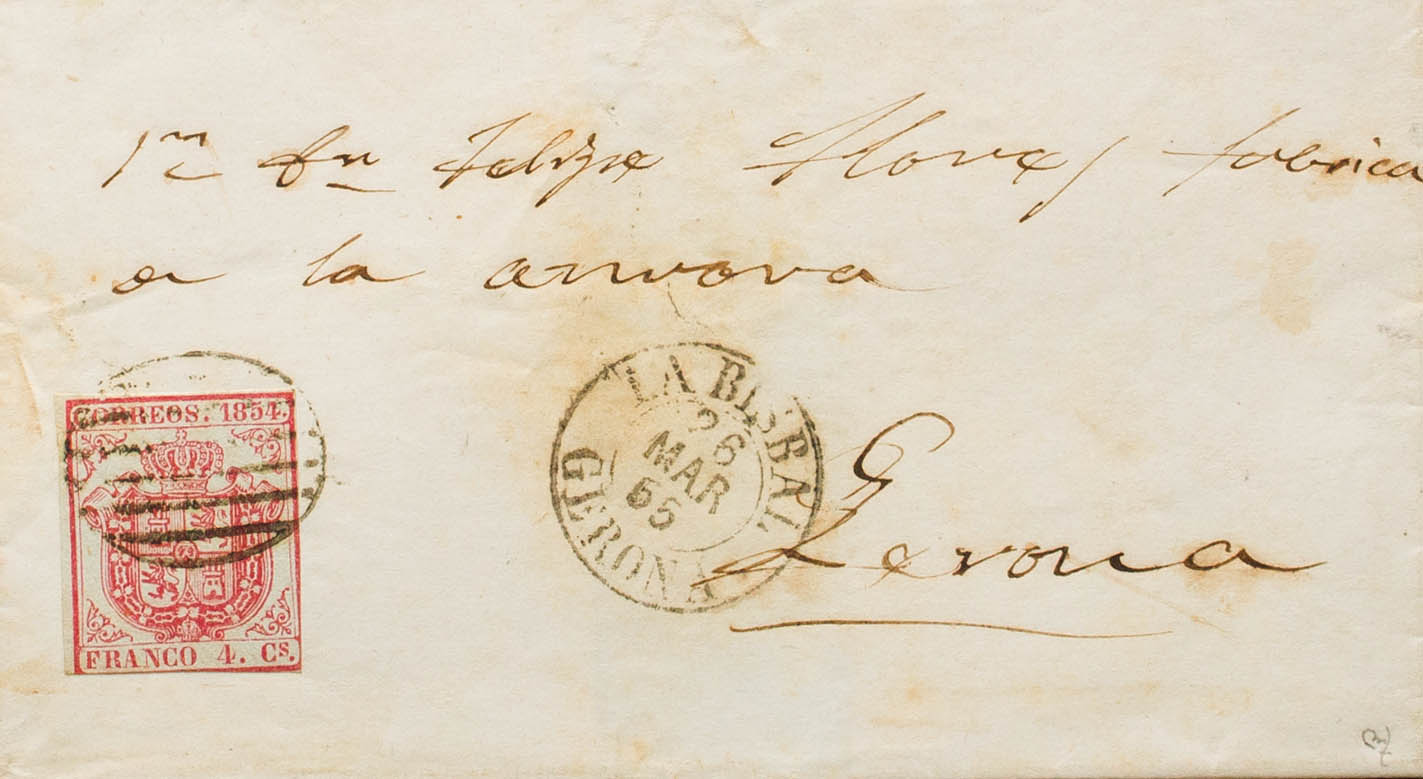 Felipe Flores fabrica
a la
CORREOS. 1854.
FRANCO 4. Cs.
LA BISBAL
26
MAR
55
GERONA
Gerona